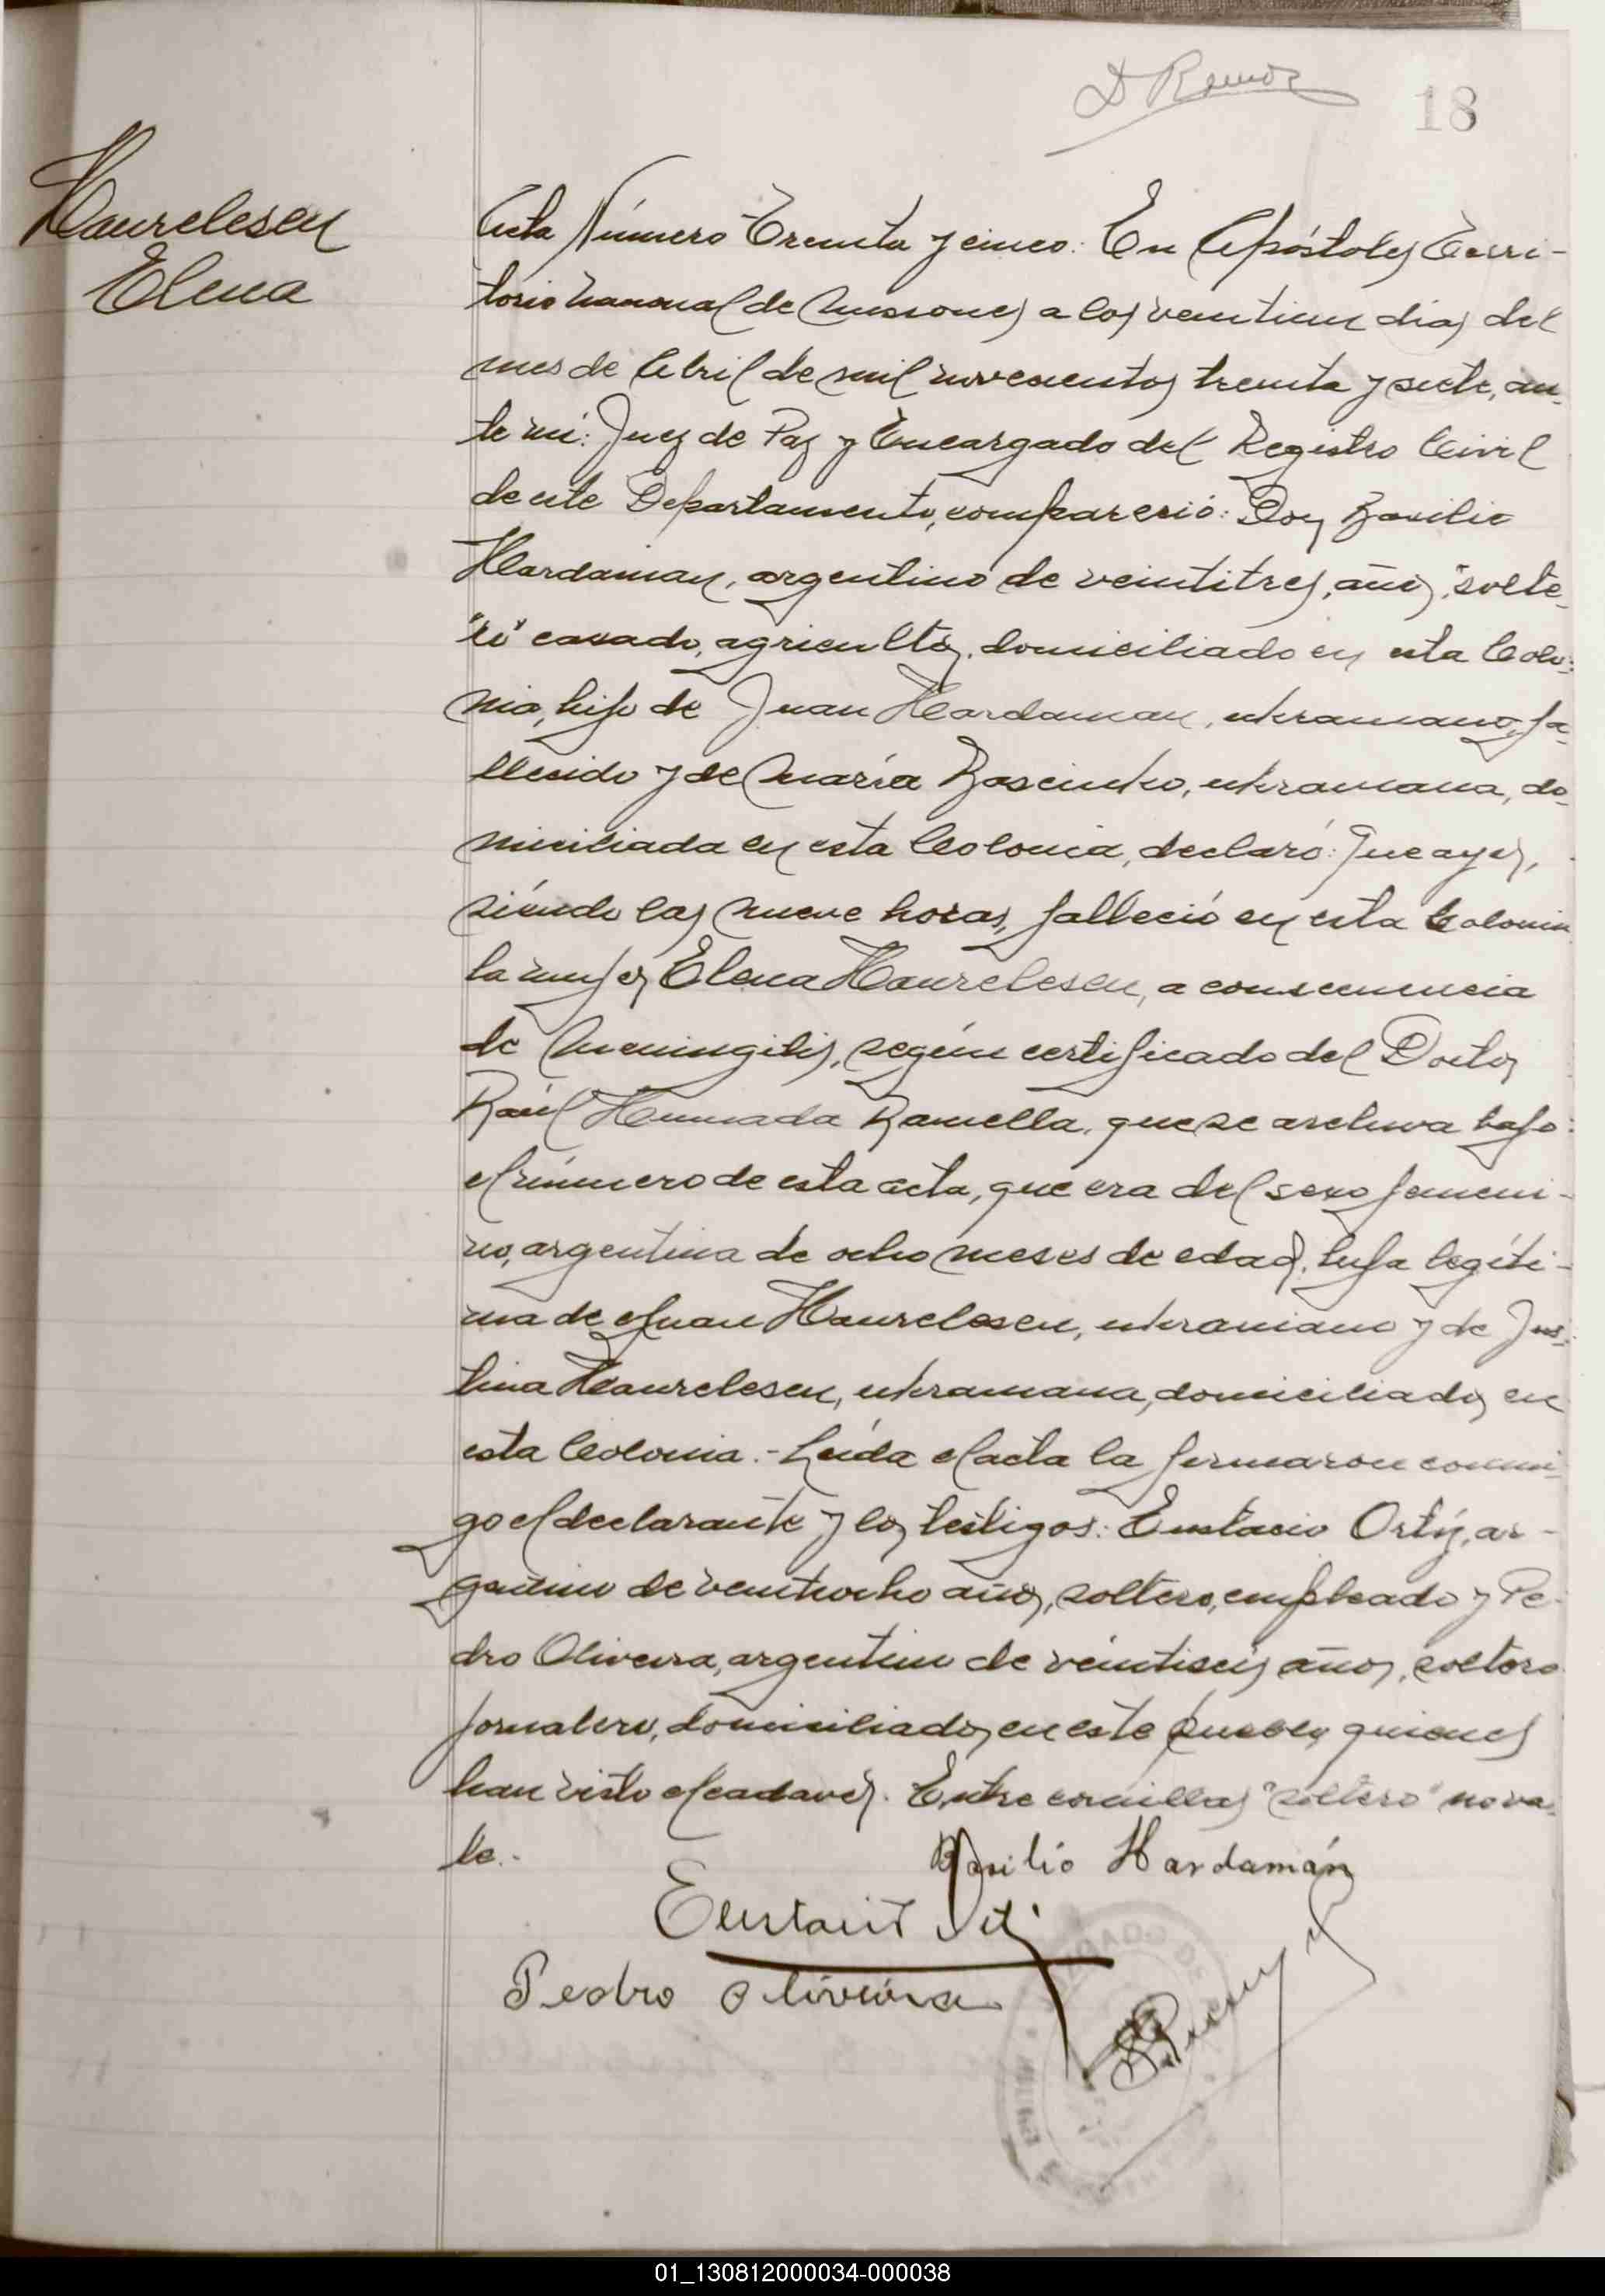 D Ramos
18
Haurelescu
Elena
Acta Número Treinta y cinco: En Apóstoles Terri-
torio Nacional de Misiones a los veintiun dias del
mes de Abril de mil novecientos treinta y siete, an-
te mi: Juez de Paz y Encargado del Registro Civil
de este Departamento, compareció: Don Basilio
Hardaman, argentino de veintitres, años, "solte-
ro" casado, agricultor, domiciliado en esta Colo-
nia, hijo de Juan Hardaman, ukraniano, fa-
llecido y de María Boscinko, ukraniana, do-
miciliada en esta Colonia, declaró: Que ayer,
siéndo las nueve horas, falleció en esta Colonia
la mujer Elena Haurelescu, a consecuencia
de Meningitis, según certificado del Doctor
Raúl Ramella, que se archiva bajo
el número de esta acta, que era del sexo femeni-
no, argentina de ocho meses de edad, hija legíti-
ma de Juan Haurelescu, ukraniano y de Jus-
tina Haurelescu, ukraniana, domiciliados en
esta Colonia.- Leída el acta la firmaron conmi-
go el declarante y los testigos: Eustacio Ortíz, ar-
gentino de veintiocho años, soltero, empleado y Pe-
dro Oliveira, argentino de veintiseis años, soltero
jornalero, domiciliados en este pueblo, quienes
han visto el cadaver. Entre comillas "soltero" no va-
le.-
Basilio Hardamán
Pedro Oliveira
JUZGADO DE
01_130812000034-000038